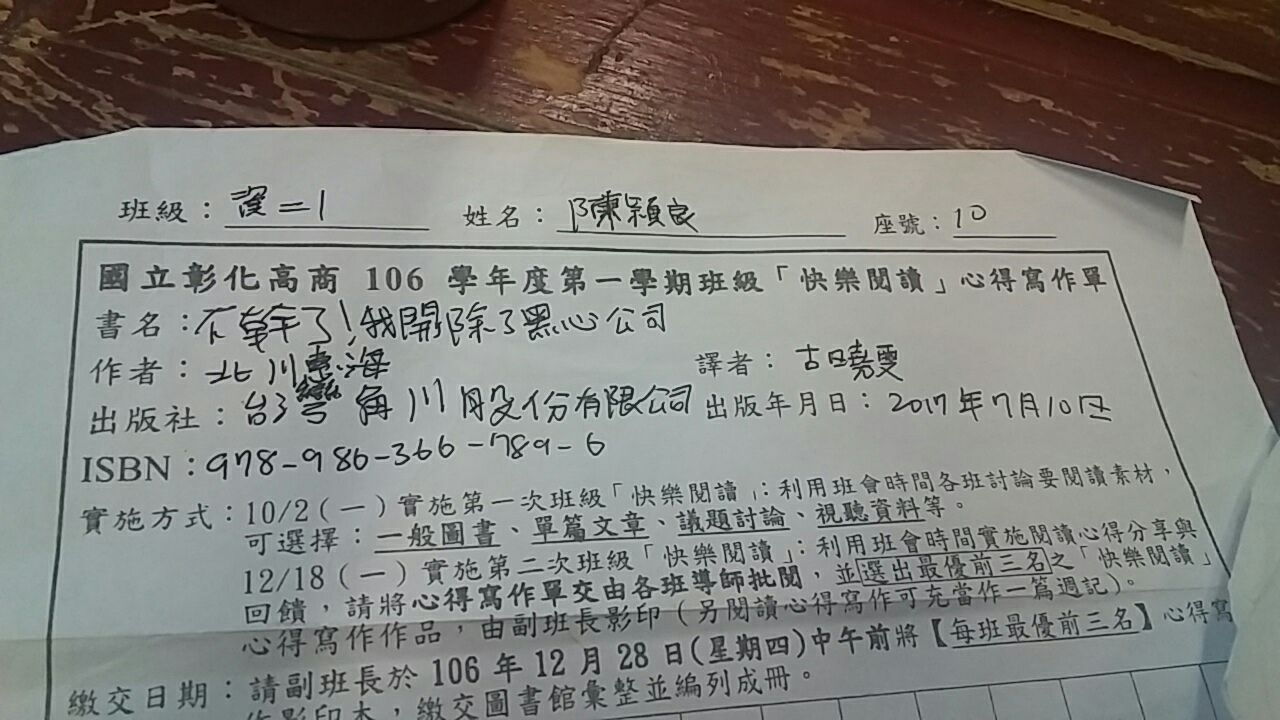 班級：資二1 姓名：陳穎良 座號：10
國立彰化高商 106 學年度第一學期班級「快樂閱讀」心得寫作單
書名：不幹了!我開除了黑心公司
作者：北川惠海 譯者：古曉雯
出版社：台灣角川股份有限公司 出版年月日：2017年7月10日
ISBN：978-986-366-789-6
實施方式：10/2(一)實施第一次班級「快樂閱讀」：利用班會時間各班討論要閱讀素材，
可選擇：一般圖書、單篇文章、議題討論、視聽資料等。
12/18(一)實施第二次班級「快樂閱讀」：利用班會時間實施閱讀心得分享與
回饋，請將心得寫作單交由各班導師批閱，並選出最優前三名之「快樂閱讀」
心得寫作作品，由副班長影印(另閱讀心得寫作可充當作一篇週記)。
繳交日期：請副班長於 106 年 12 月 28 日(星期四)中午前將【每班最優前三名】心得寫
作影印本，繳交圖書館彙整並編列成冊。